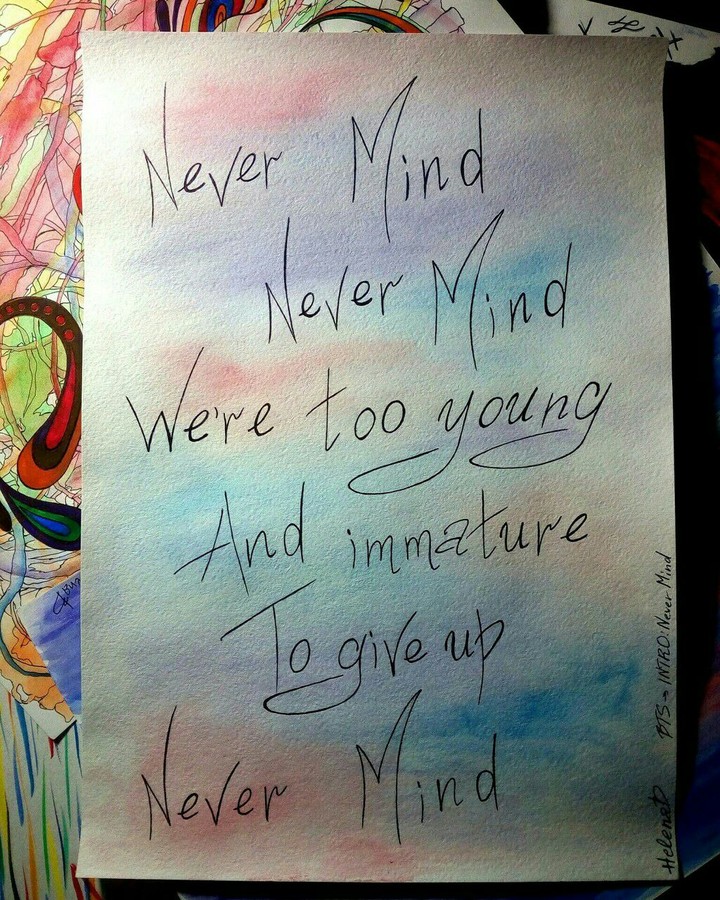 Never Mind
Never Mind
We're too young
And immature
To give up
Never Mind
BTS → INTRO: Never Mind
HelenaD